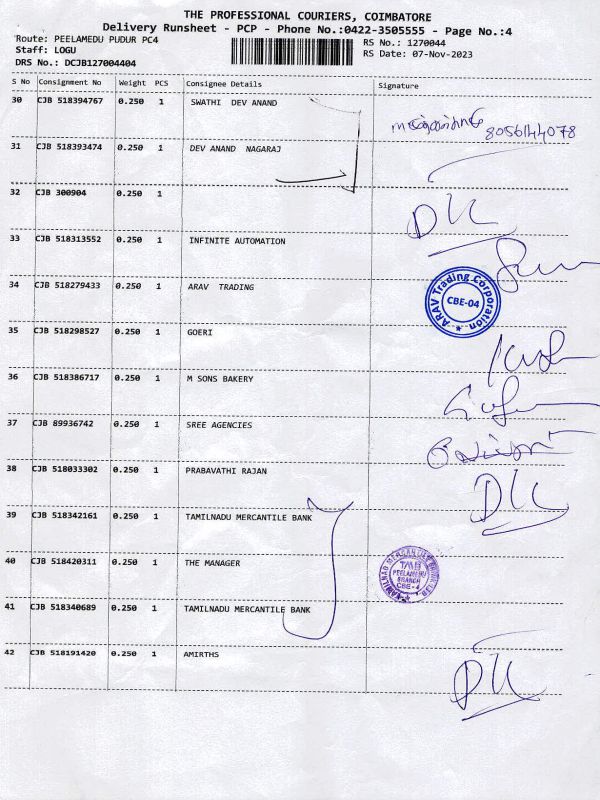 THE PROFESSIONAL COURIERS, COIMBATORE
Delivery Runsheet - PCP - Phone No.:0422-3505555 - Page No.:4
Route: PEELAMEDU PUDUR PC4
RS No.: 1270044
Staff: LOGU
RS Date: 07-Nov-2023
DRS No.: DCJB127004404
S No Consignment No Weight PCS Consignee Details Signature
30 CJB 518394767 0.250 1 SWATHI DEV ANAND
8056144078
31 CJB 518393474 0.250 1 DEV ANAND NAGARAJ
32 CJB 300904 0.250 1
DLL
33 CJB 518313552 0.250 1 INFINITE AUTOMATION
34 CJB 518279433 0.250 1 ARAV TRADING
ARAV Trading Corporation
CBE-04
35 CJB 518298527 0.250 1 GOERI
36 CJB 518386717 0.250 1 M SONS BAKERY
37 CJB 89936742 0.250 1 SREE AGENCIES
38 CJB 518033302 0.250 1 PRABAVATHI RAJAN
DLL
39 CJB 518342161 0.250 1 TAMILNADU MERCANTILE BANK
40 CJB 518420311 0.250 1 THE MANAGER
TAMILNAD MERCANTILE BANK LTD
TMB
PEELAMEDU
BRANCH
CBE-4
41 CJB 518340689 0.250 1 TAMILNADU MERCANTILE BANK
42 CJB 518191420 0.250 1 AMIRTHS
DLL